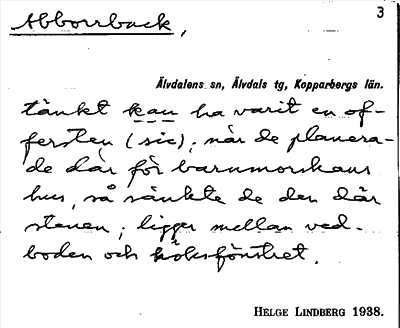 3
Abborrback,
Älvdalens sn, Älvdals tg, Kopparbergs län.
tänkt kan ha varit en of-
fersten (sic); när de planera-
de där för barnmorskans
hus, så sänkte de den där
stenen; ligger mellan ved-
boden och köksfönstret.
HELGE LINDBERG 1938.